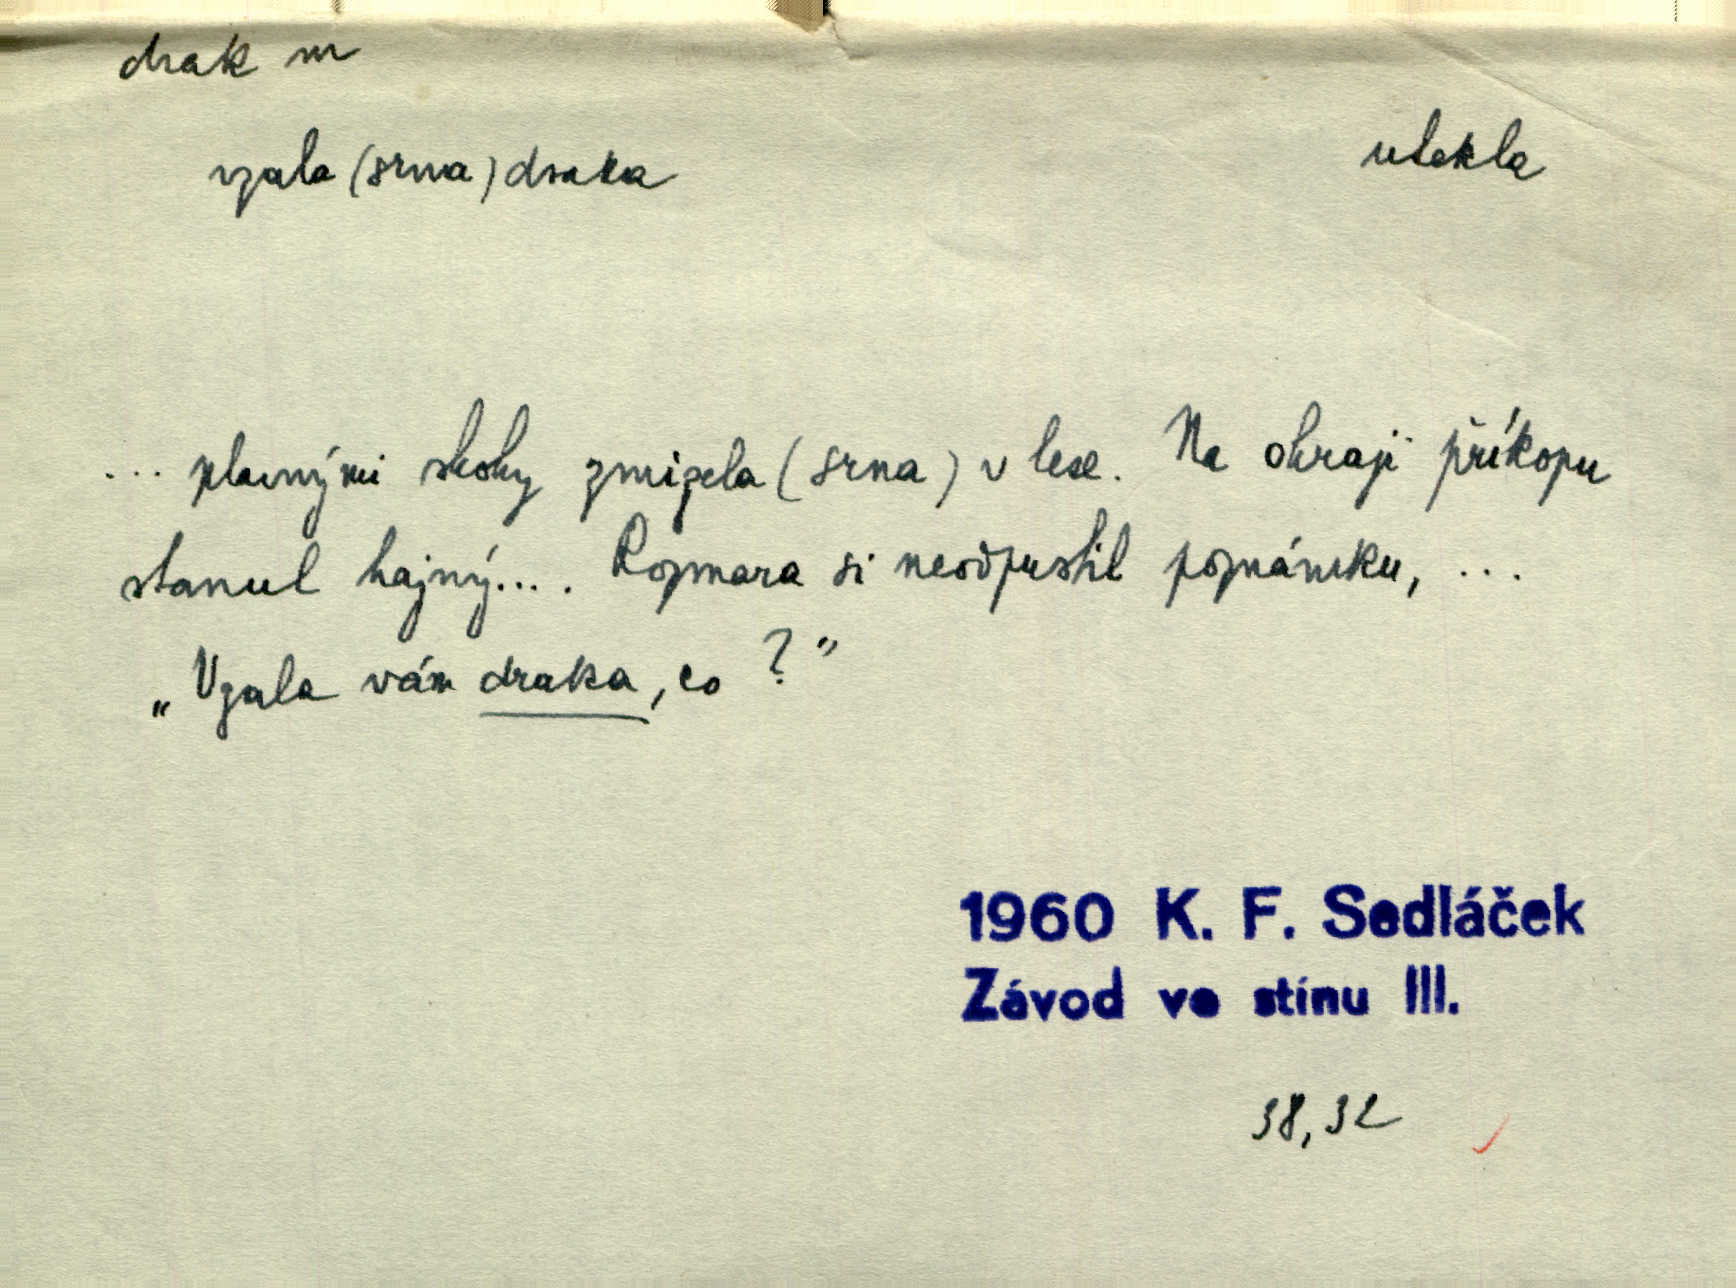 drak m
vzala (srna) draka utekla
... plavnými skoky zmizela (srna) v lese. Na okraji příkopu
stanul hajný.... Rozmara si neodpustil poznámku, ...
„Vzala vám draka, co ?"
1960 K. F. Sedláček
Závod ve stínu III.
38, 32